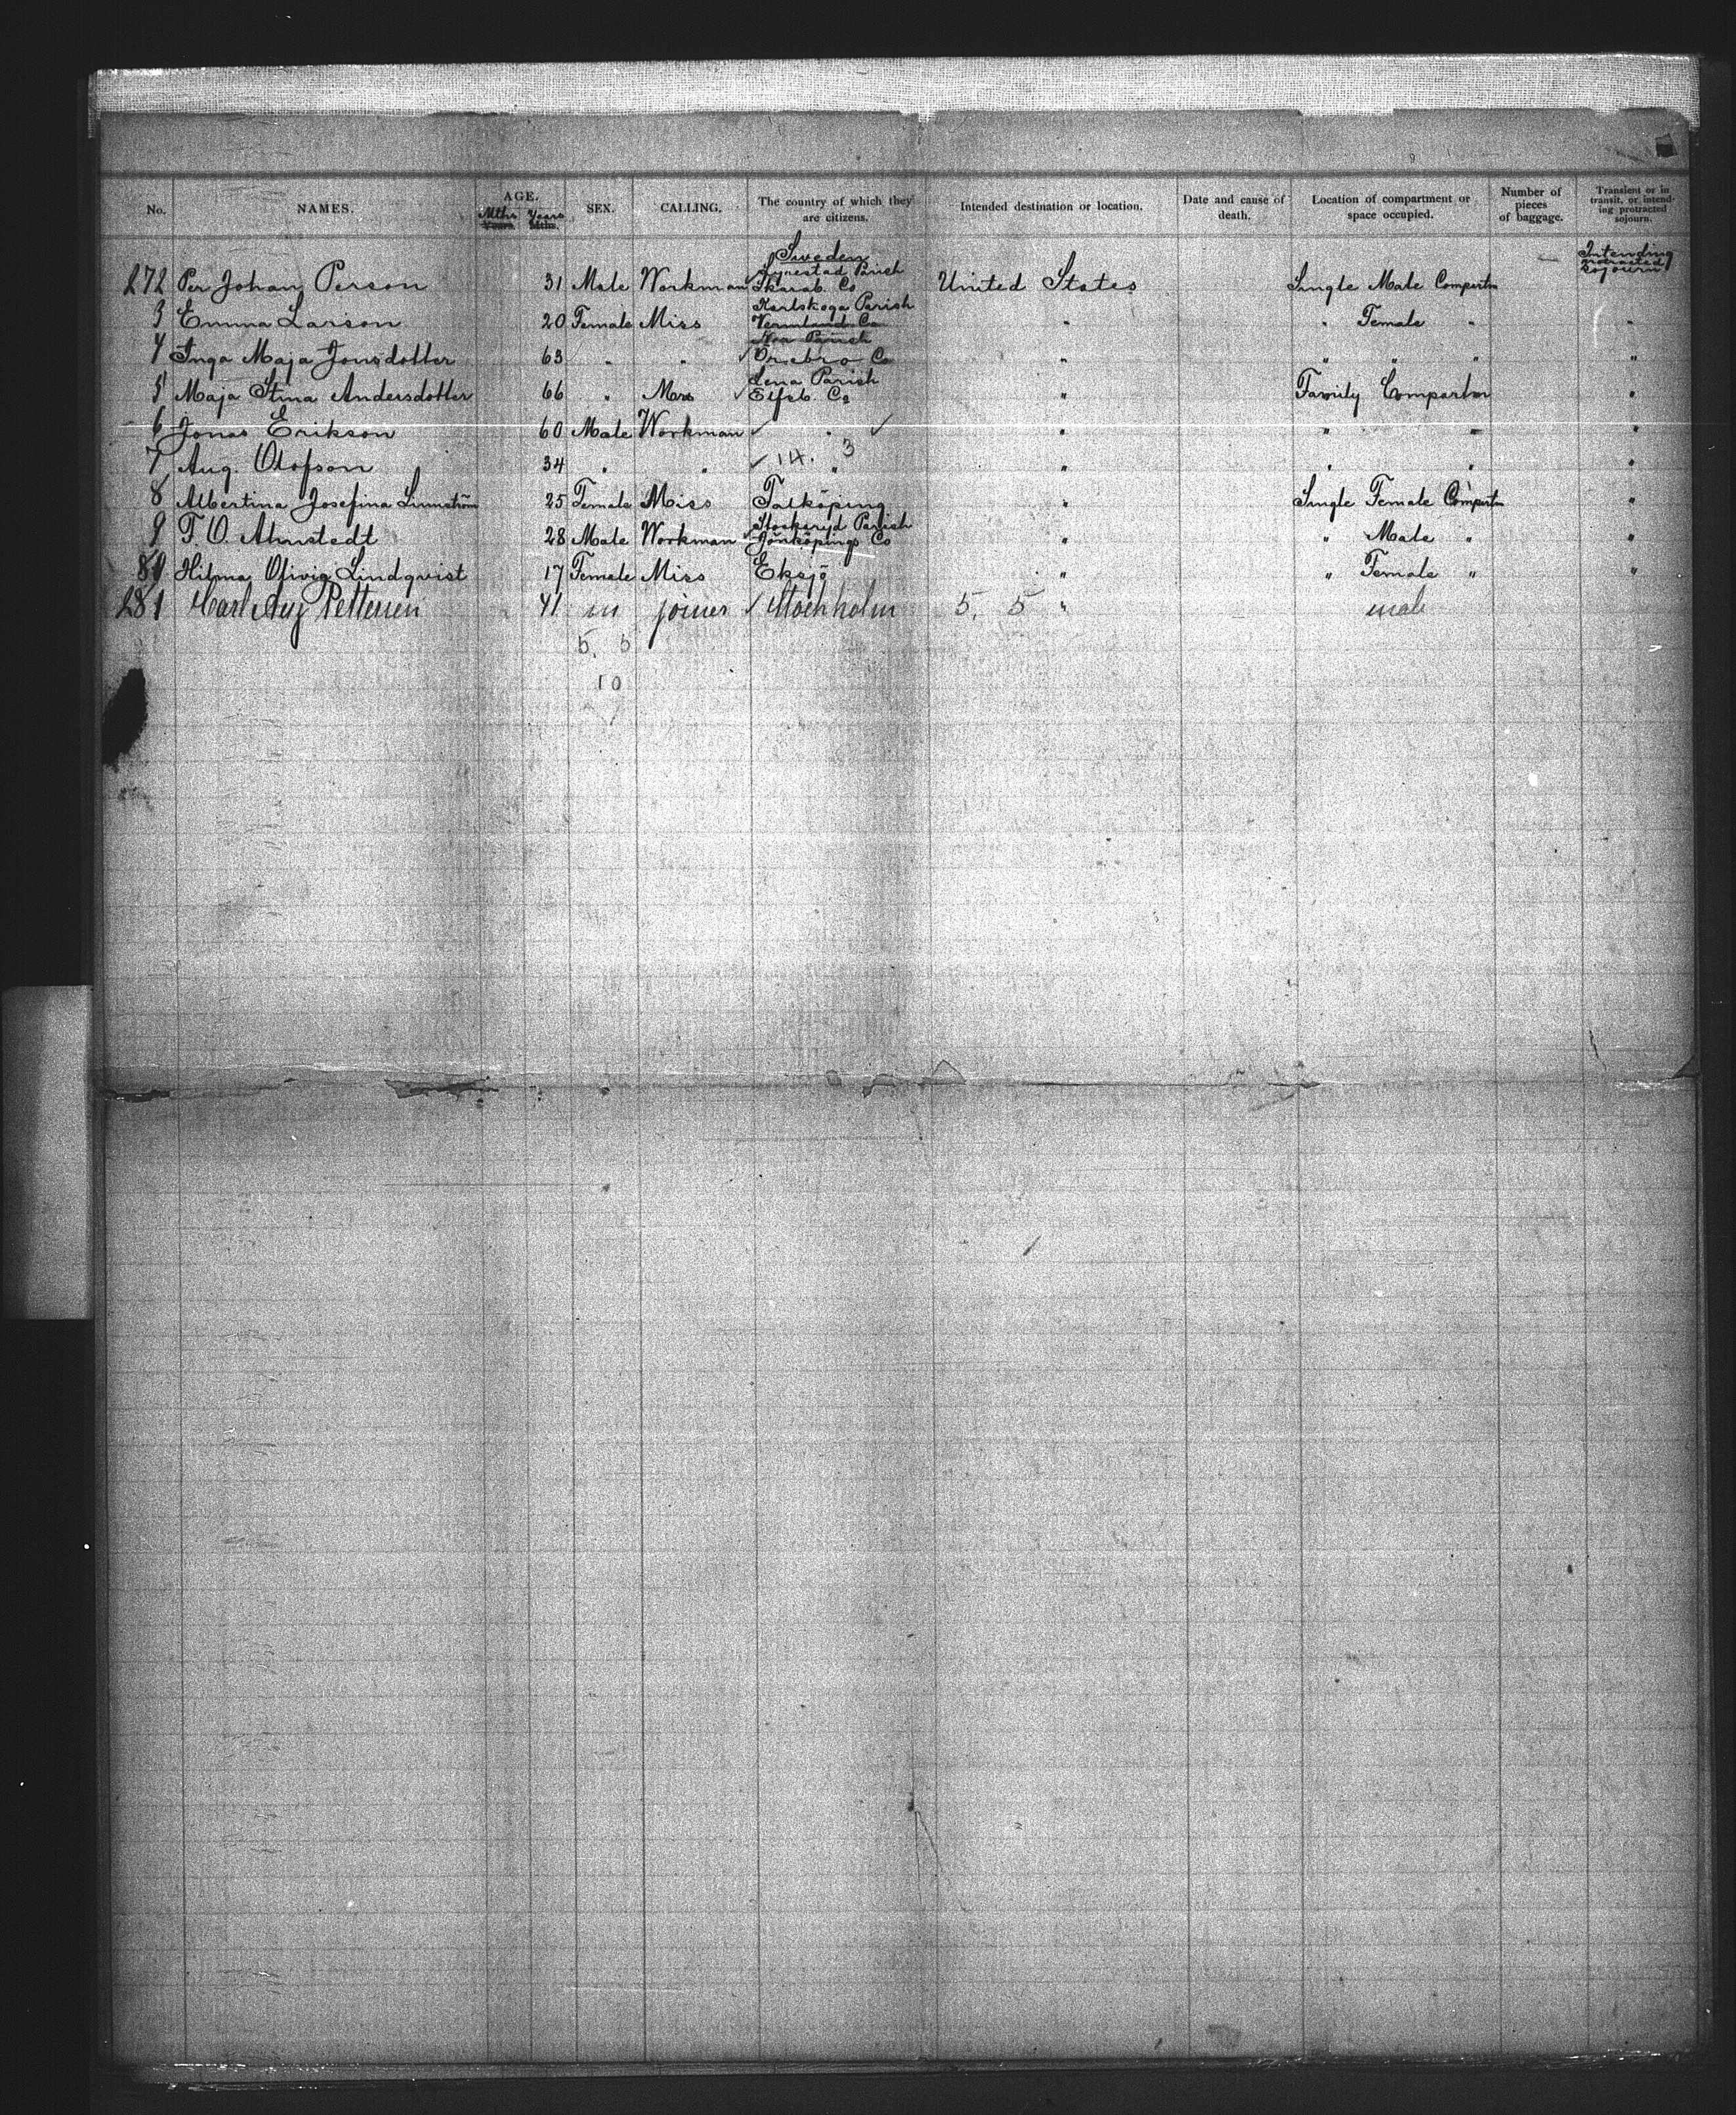 No. NAMES. AGE. SEX. CALLING. The country of which they are citizens. Intended destination or location. Date and cause of death. Location of compartment or space occupied. Number of pieces of baggage. Transient or in transit, or intending protracted sojourn.
Mths Years
Years. Mths.
Sweden Intending protracted sojourn
Parish
272 Per Johan Person 31 Male Workman Skarab. Co United States Single Male Compartm
Karlskoga Parish
3 Emma Larson 20 Female Miss Vermland Co " " Female " "
Parish
4 Inga Maja Jonsdotter 63 " " Örebro Co " " " " "
Lena Parish
5 Maja Stina Andersdotter 66 " Mrs Elfsb. Co " Family Compartm "
6 Jonas Erikson 60 Male Workman " " " " "
7 Aug. Olofson 34 " " 14. 3 " " " " "
8 Albertina Josefina Linnström 25 Female Miss Falköping " Single Female Compartm "
Stockaryd Parish
9 F. O. Almstedt 28 Male Workman Jönköpings Co " " Male " "
80 Hilma Olivia Lindqvist 17 Female Miss Eksjö " " Female " "
281 Carl Aug Petterson 41 m joiner Stockholm 5. 5 " male
5. 5
10